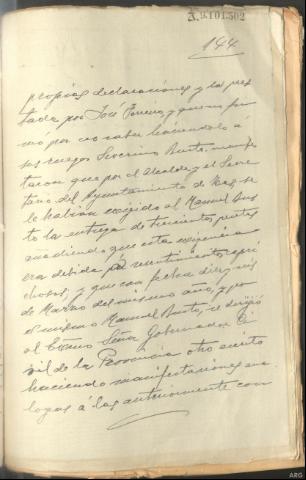 A.9.101.502
144
propias declaraciones y la pres
tada por José Ferreiro, y que no fir
mó por no saber haciéndolo á
sus ruegos Severino Busto, manifes
taron que por el Alcalde y el Secre
tario del Ayuntamiento de se
le habían exigido al Manuel Bus
to la entrega de trescientas pesetas
anadiendo que esta exigencia
era debida á resentimientos
y que con fecha diez y seis
de Marzo del mismo año, y por
el mismo Manuel Busto, se dirigió
al Exmo Señor Gobernador Ci
vil de la Provincia otro escrito
haciendo manifestaciones ana
logas á las anteriormente con
ARG